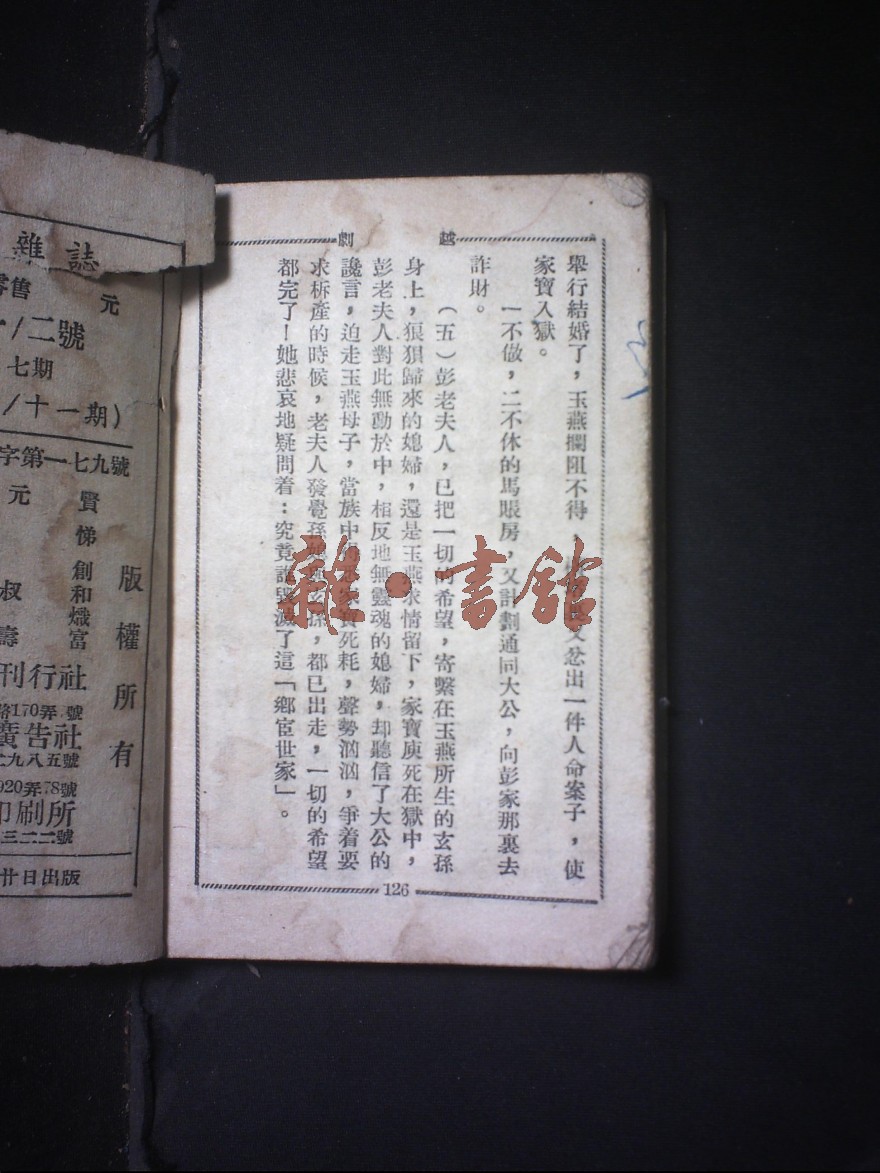 越劇
舉行結婚了，玉燕攔阻不得，又忿出一件人命案子，使
家寶入獄。
一不做，二不休的馬賬房，又計劃通同大公，向彭家那裏去
詐財。
（五）彭老夫人，已把一切的希望，寄繫在玉燕所生的玄孫
身上，狼狽歸來的媳婦，還是玉燕求情留下，家寶庾死在獄中，
彭老夫人對此無動於中，相反地無靈魂的媳婦，却聽信了大公的
讒言，迫走玉燕母子，當族中寶死耗，聲勢汹汹，爭着要
求柝產的時候，老夫人發覺孫，都已出走，一切的希望
都完了！她悲哀地疑問着：究竟誰毀滅了這「鄉宦世家」。
126
雜·書館
雜誌
零售 元
/二號
七期
/十一期）
字第一七九號
元
賢悌
創和熾富
叔
壽
版權所有
刊行社
路170弄 號
廣告社
九八五號
920弄78號
印刷所
三二二號
廿日出版